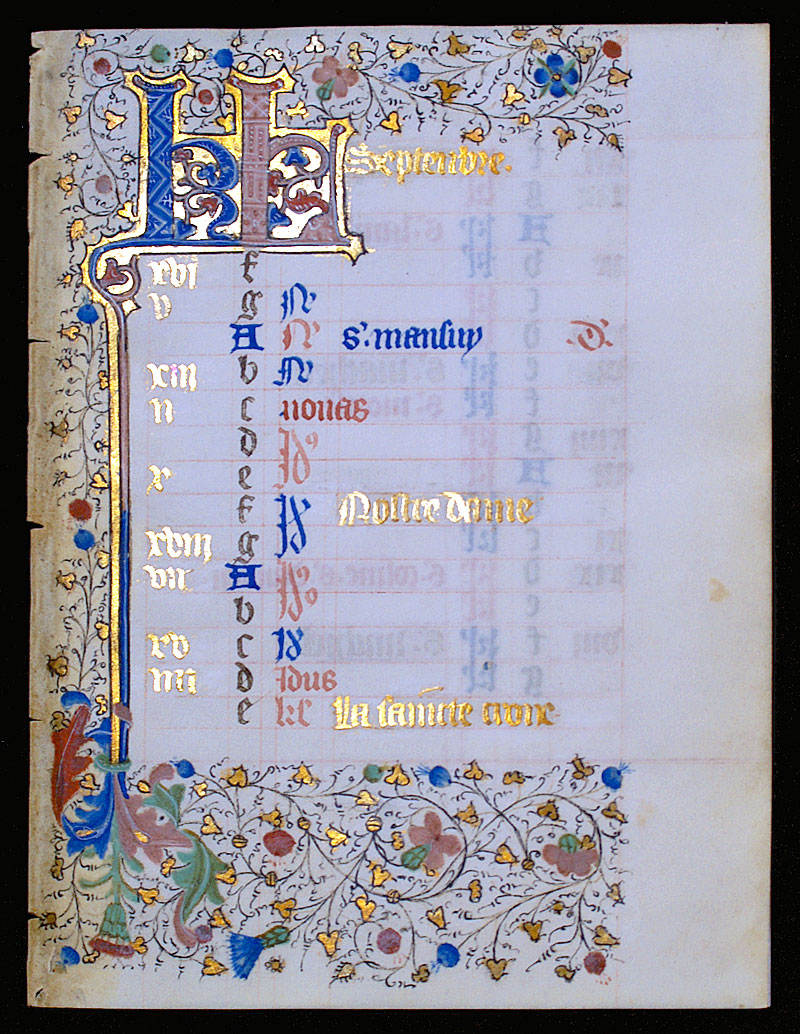 KL Septembre.
xvi f
v g N
A N s'. mansuy .D.
xiii b N
ii c nonas
d Id
x e Id
f Id Nostre dame
xviii g Id
vii A Id
b Id
xv c Id
iiii d Idus
e kl La saincte croix